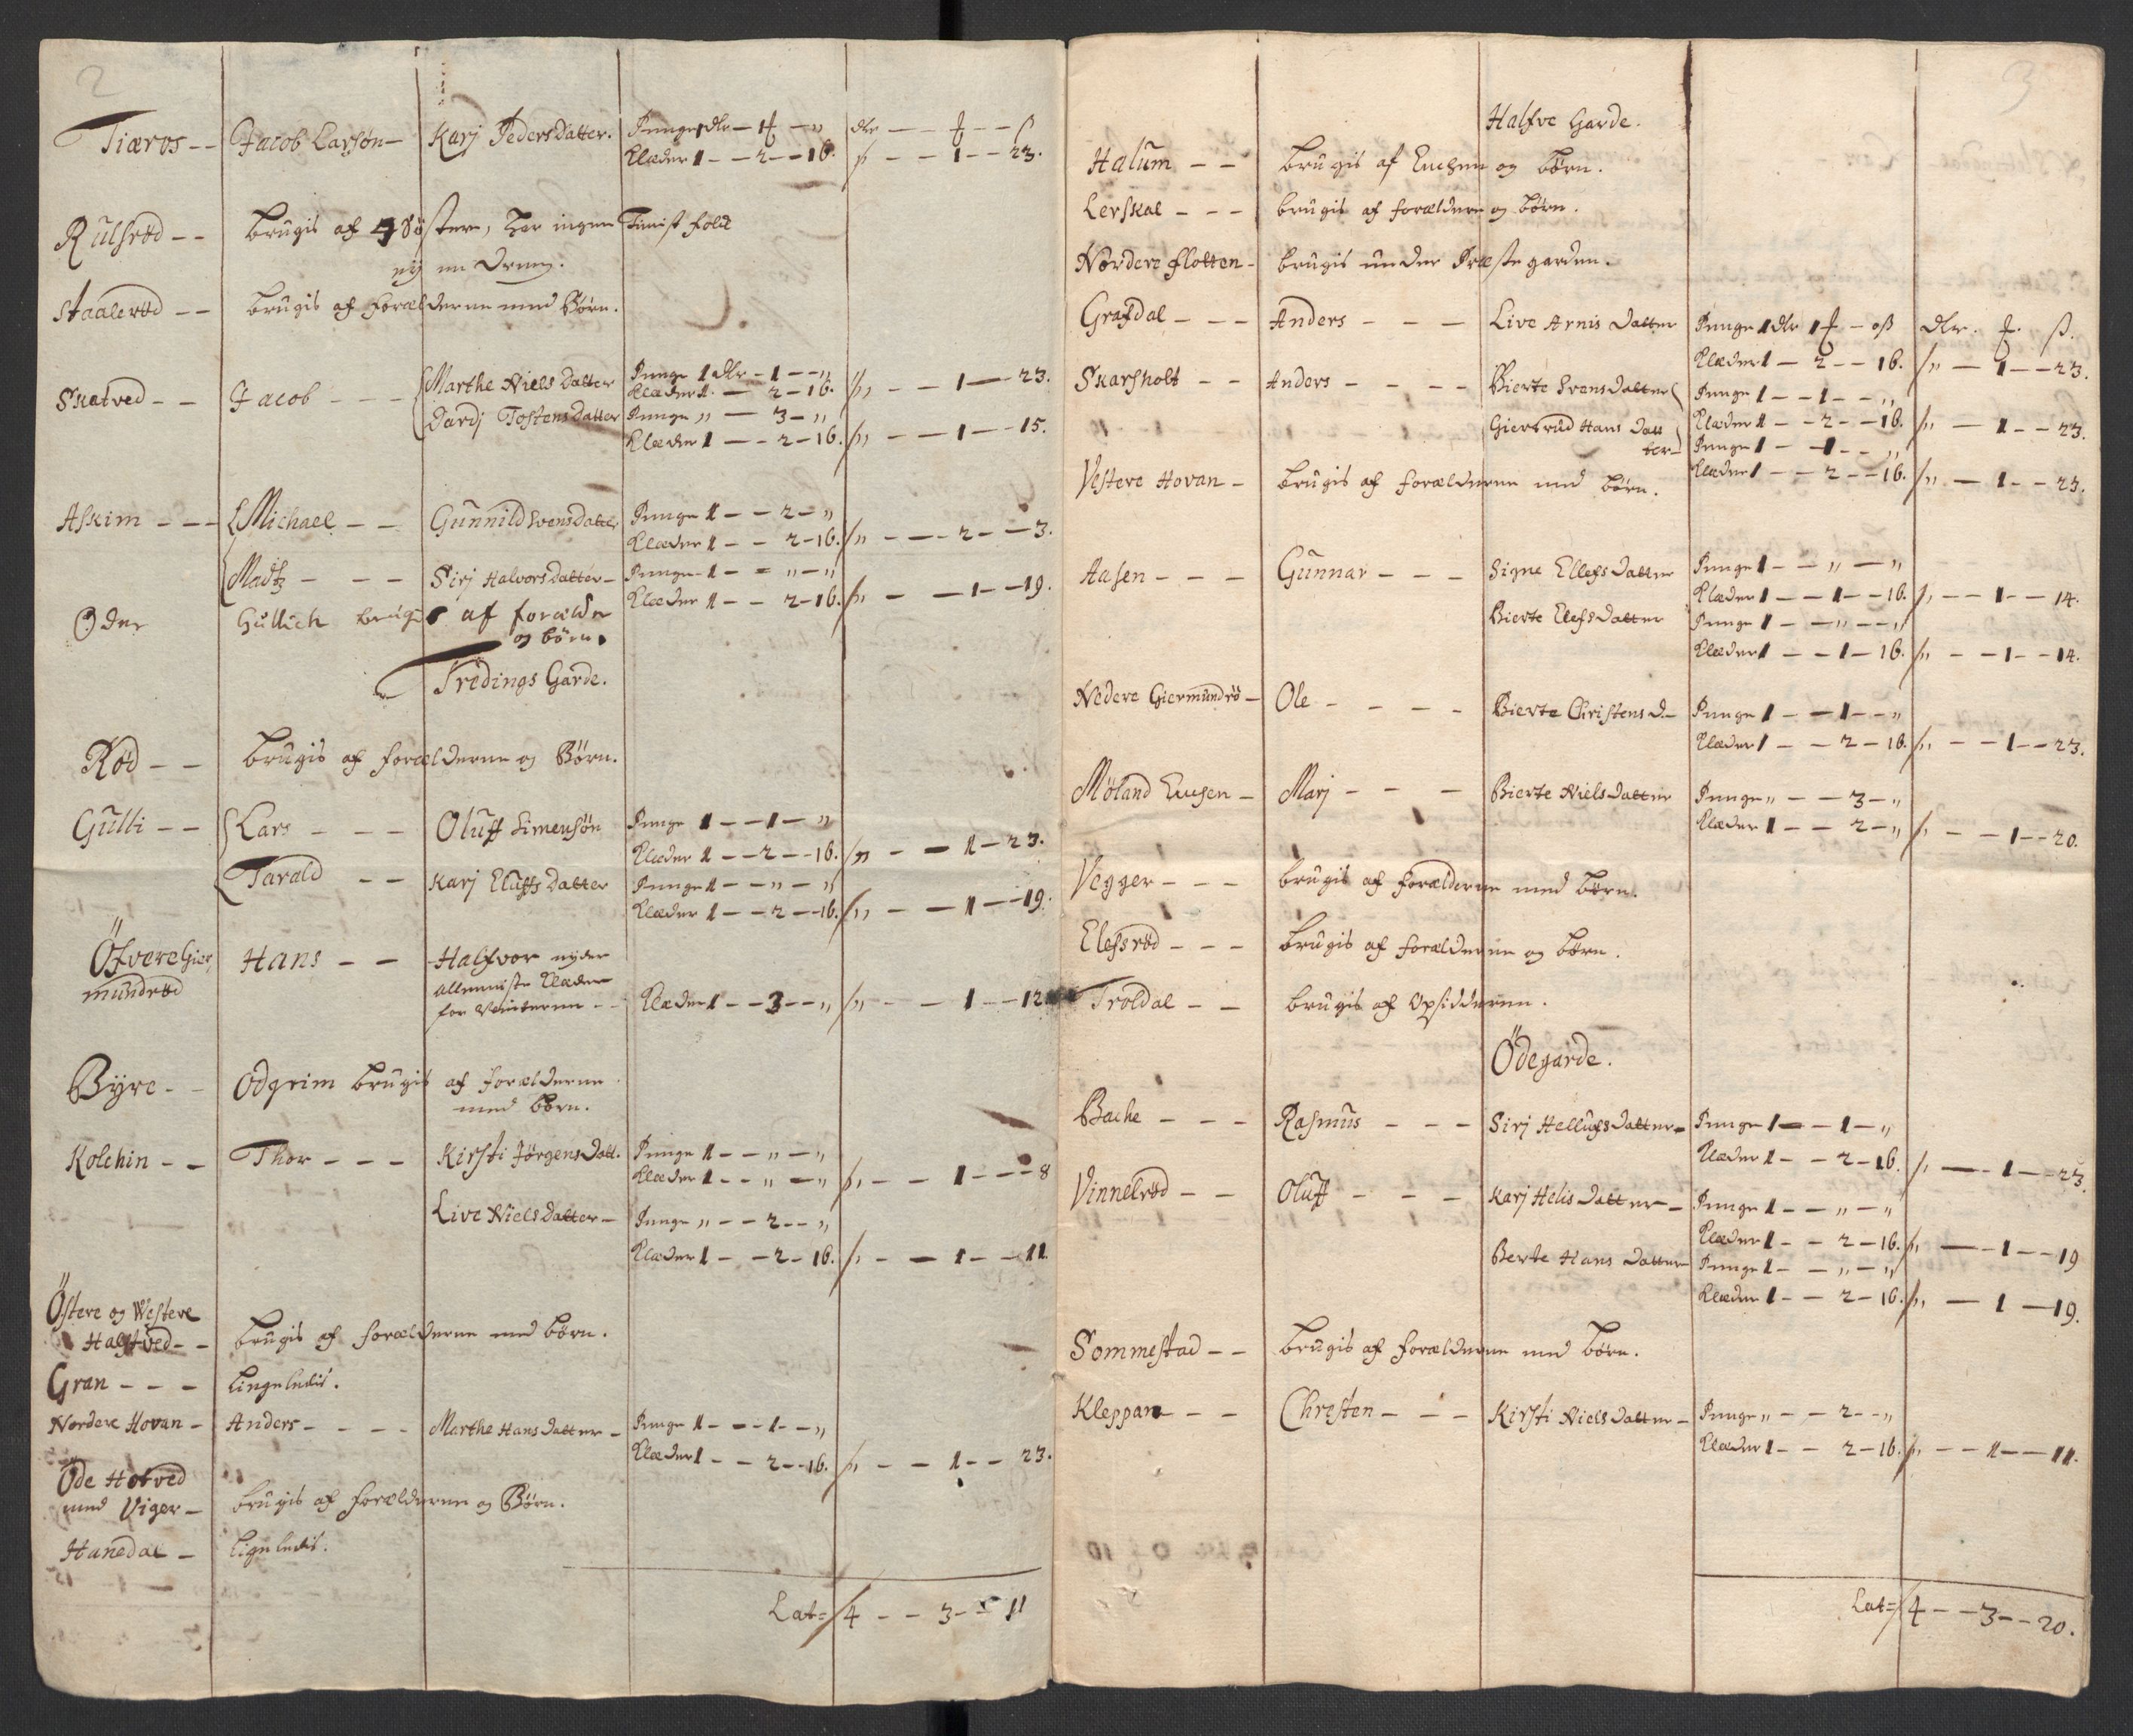 2
Tiæros -- Jacob Larsøn - Karj Pedersdatter. Penge 1 dlr - 1 ƒ - „ dlr -- ƒ -- ß
Klæder 1 -- 2 -- 16. „ -- 1 -- 23.
Rulsrød -- brugis af Søstere, har ingen Tienist folck
eÿ en Dreng.
Staalerød -- brugis af forælderne med Børn.
Skatved -- Jacob --- Marthe Niels datter Penge 1 dlr - 1 -- „
Klæder 1. - 2 - 16. „ -- 1 -- 23.
Dardj Tostens datter Penge „ - 3 - „
Klæder 1 -- 2 - 16. „ -- 1 -- 15.
Askim --- Michael -- Gunnild Svens datter Penge 1 -- 2 - „
Klæder 1 -- 2 - 16. „ --- 2 -- 3.
Madtz --- Sirj Halvors datter - Penge - 1 -- „ - „
Klæder 1 -- 2 - 16. „ -- 1 -- 19.
Oder Gullich brugis af forælder
og børn.
Tredings Garde.
Rød -- brugis af forælderne og Børn.
Gulli -- Lars --- Oluff Simensøn Penge 1 -- 1 - „
Klæder 1 -- 2 -- 16. „ -- 1 - 23.
Tarald -- Karj Eluffs datter Penge 1 -- „ - „
Klæder 1 -- 2 -- 16. „ -- 1 -- 19.
Öfvere Gier
mundrød Hans -- Halfvor nyder
alleeniste Klæder
for Vinteren -- Klæder 1 -- 3 -- „ „ -- 1 -- 12
Byre -- Odgrim brugis af forælderne
med børn.
Kolchin -- Thor --- Kirsti Jørgens datt. Penge 1 -- „ - „
Klæder 1 -- „ - „ „ -- 1 --- 8
Live Niels datter - Penge „ -- 2 -- „
Klæder 1 -- 2 - 16. „ -- 1 -- 11.
Östere og Westere
Halfved -- brugis af forælderne med børn.
Gran --- Lingeledis.
Nordere Hovan - Anders ---- Marthe Hans datter - Penge 1 --- 1 -- „
Klæder 1 -- 2 -- 16. „ -- 1 -- 23.
Öde Hotved
med Viger - brugis af forælderne og Børn.
Hanedal - Ligeledis.
Lat= 4 -- 3 -- 11
3
Halfve Garde.
Halum -- brugis af Enchen og børn.
Lerskal --- brugis af forældere og børn.
Nordere flotten - brugis under Præste garden.
Grafdal --- Anders --- Live Arnis datter Penge 1 dlr 1 ƒ - oß dlr. ƒ. ß.
Klæder 1 - 2 -- 16. „ - 1 -- 23.
Skarsholt -- Anders ---- Bierte Svens datter Penge 1 -- 1 -- „
Klæder 1 -- 2 -- 16. „ - 1 -- 23.
Giertrud Hans dat
ter - Penge 1 -- 1 -- „
Klæder 1 -- 2 -- 16. „ - 1 -- 23.
Vestere Hovan - brugis af forælderne med børn.
Aasen --- Gunnar --- Signe Ellefs datter Penge 1 -- „ - „
Klæder 1 -- 1 -- 16. „ -- 1 -- 14.
Bierte Elefs datter Penge 1 -- „ -- „
Klæder 1 -- 1 - 16. „ -- 1 -- 14.
Nedere Giermundrö - Ole ---- Bierte Christens d - Penge 1 -- 1 -- „
Klæder 1 -- 2 - 16. „ -- 1 -- 23.
Møland - Marj --- Bierte Niels datter Penge „ -- 3 - „
Klæder 1 -- 2 - „ „ -- 1 -- 20.
Vegger --- brugis af forælderne med børn.
Elefsrød --- brugis af forælderne og børn.
Troldal -- brugis af Opsidderen.
Ödegarde.
Bache --- Rasmus --- Sirj Hellufs datter - Penge 1 -- 1 - „
Klæder 1 -- 2 - 16. „ -- 1 -- 23.
Vinnelrød -- Oluff --- Karj Helis datter - Penge 1 -- „ - „
Klæder 1 -- 2 - 16. „ -- 1 -- 19
Berte Hans datter Penge 1 -- „ - „
Klæder 1 -- 2 - 16. „ - 1 - 19.
Sommestad -- brugis af forælderne med børn.
Kleppan --- Chresten --- Kirsti Niels datter - Penge „ -- 2 -- „
Klæder 1 -- 2 - 16. „ -- 1 -- 11.
Lat= 4 -- 3 -- 20.